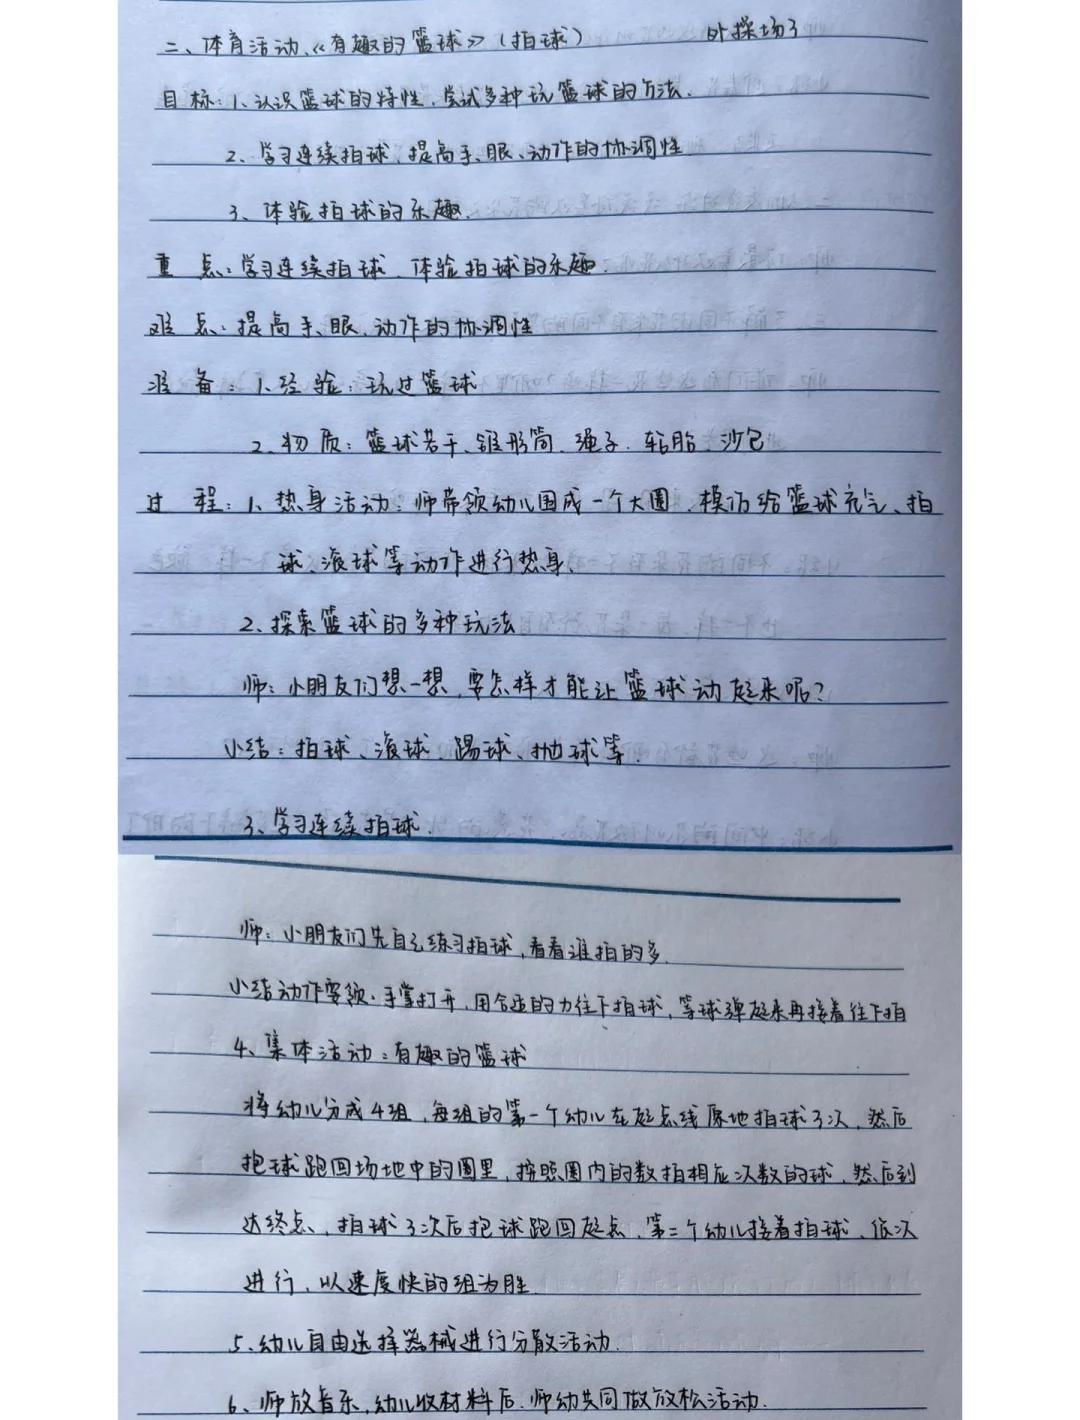 二、体育活动、《有趣的篮球》(拍球) 外操场3
目标:1、认识篮球的特性,尝试多种玩篮球的方法.
2、学习连续拍球,提高手、眼、动作的协调性
3、体验拍球的乐趣.
重 点:学习连续拍球、体验拍球的乐趣.
难 点:提高手、眼、动作的协调性
准 备:1、经验:玩过篮球
2、物质:篮球若干、锥形筒、绳子、轮胎、沙包
过 程:1、热身活动:师带领幼儿围成一个大圈、模仿给篮球充气、拍
球、滚球等动作进行热身.
2、探索篮球的多种玩法
师:小朋友们想一想,要怎样才能让篮球动起来呢?
小结:拍球、滚球、踢球、抛球等.
3、学习连续拍球.
师:小朋友们先自己练习拍球,看看谁拍的多.
小结动作要领:手掌打开,用合适的力往下拍球,等球弹起来再接着往下拍
4、集体活动:有趣的篮球
将幼儿分成4组,每组的第一个幼儿在起点线原地拍球3次,然后
抱球跑回场地中的圈里,按照圈内的数拍相应次数的球,然后到
达终点、拍球3次后抱球跑回起点,第二个幼儿接着拍球、依次
进行,以速度快的组为胜.
5、幼儿自由选择器械进行分散活动.
6、师放音乐,幼儿收材料后,师幼共同做放松活动.